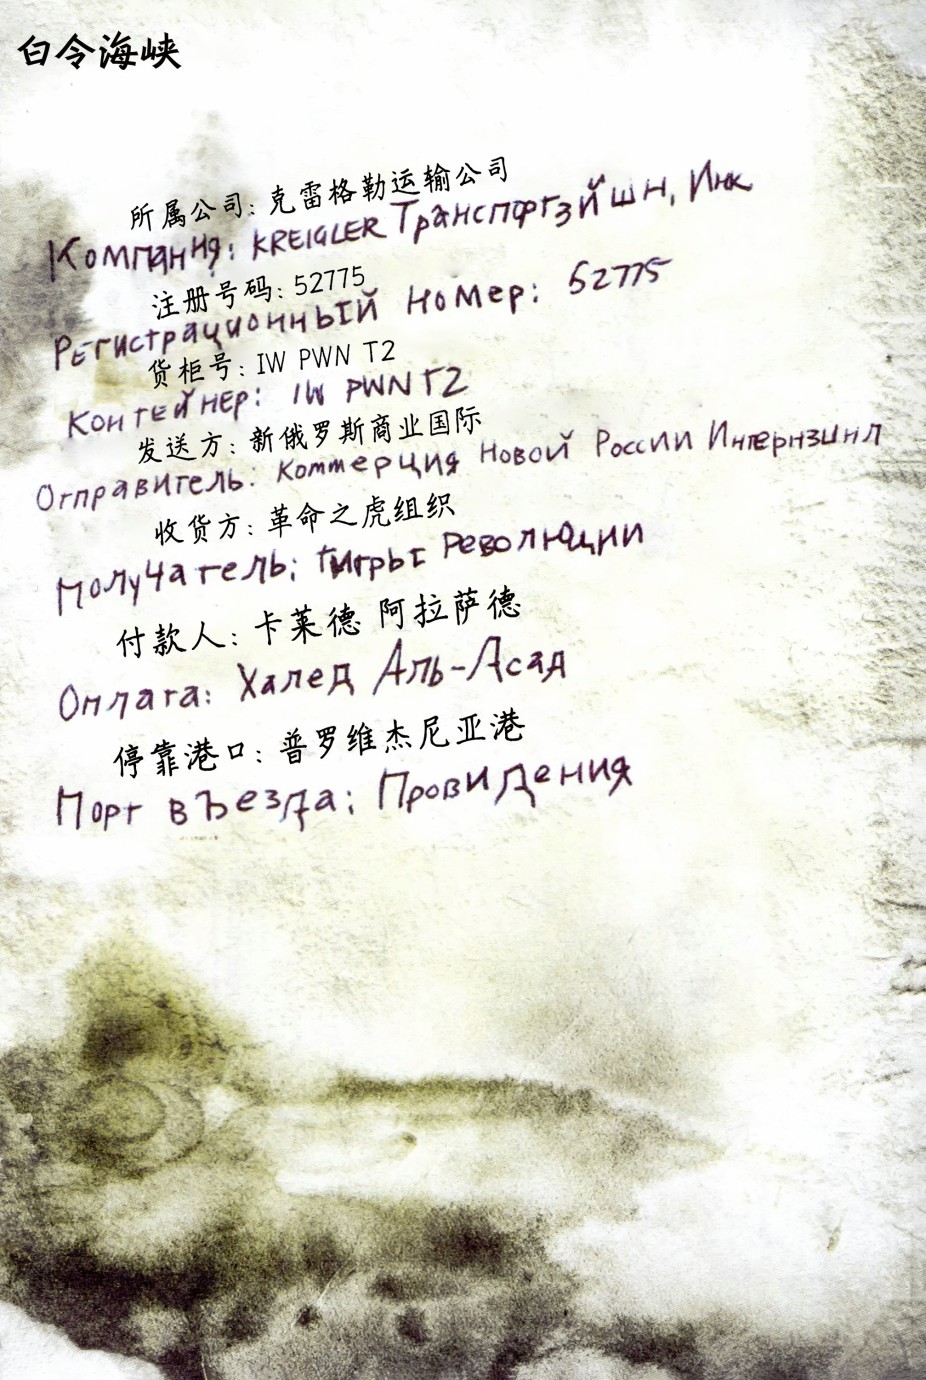 白令海峡
所属公司: 克雷格勒运输公司
Компания: KREIGLER Транспортэйшн, Инк
注册号码: 52775
Регистрационный номер: 52775
货柜号: IW PWN T2
Контейнер: IW PWN T2
发送方: 新俄罗斯商业国际
Отправитель: Коммерция Новой России Интернэшнл
收货方: 革命之虎组织
Получатель: Тигры Революции
付款人: 卡莱德 阿拉萨德
Оплата: Халед Аль-Асад
停靠港口: 普罗维杰尼亚港
Порт въезда: Провидения